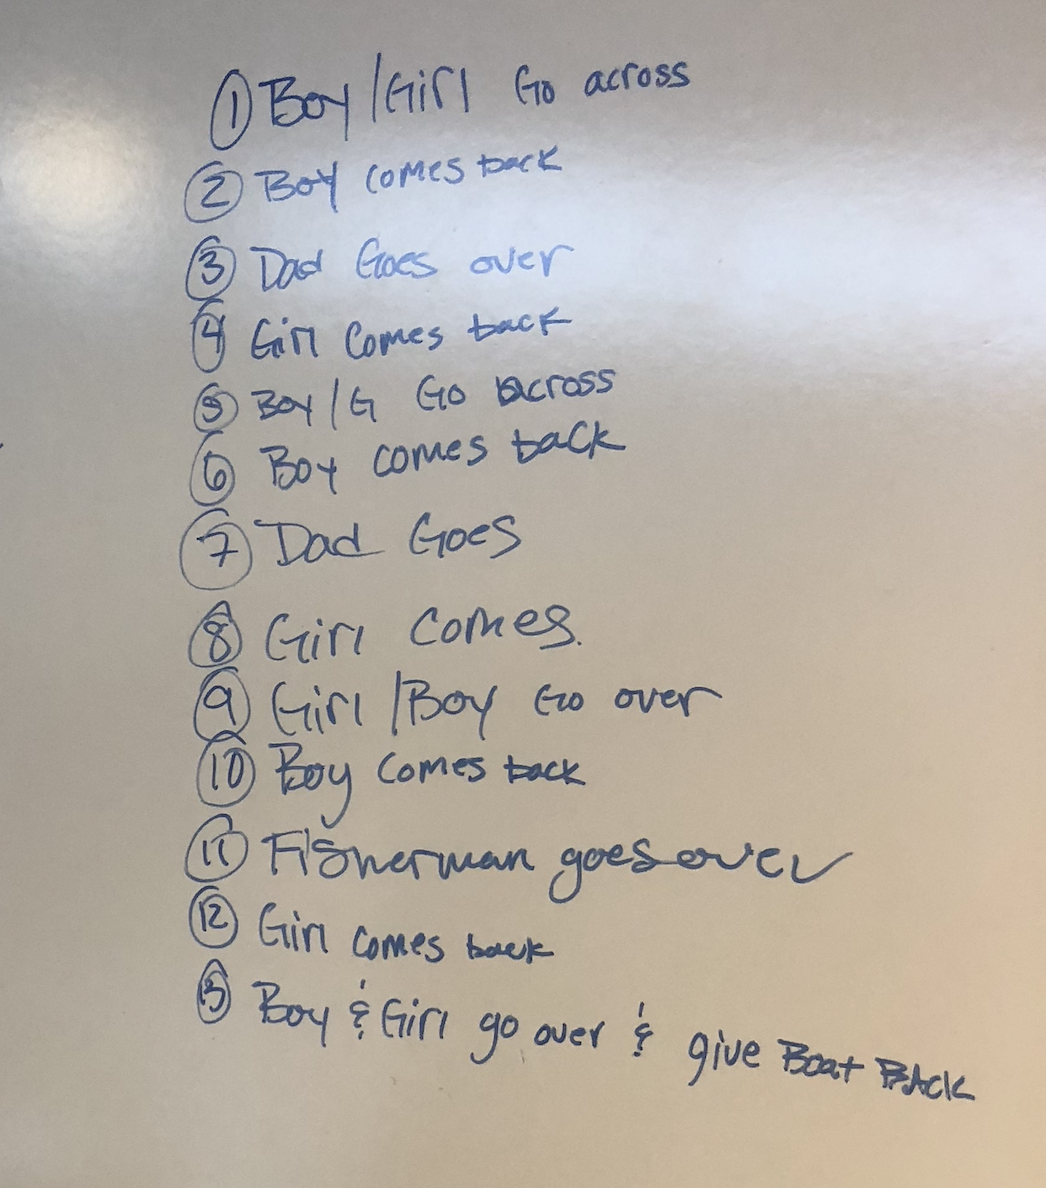 ① Boy/Girl Go across
② Boy comes back
③ Dad Goes over
④ Girl Comes back
⑤ Boy/G Go across
⑥ Boy comes back
⑦ Dad Goes
⑧ Girl Comes.
⑨ Girl/Boy Go over
⑩ Boy Comes back
⑪ Fisherman goes over
⑫ Girl comes back
⑬ Boy & Girl go over & give Boat BACK